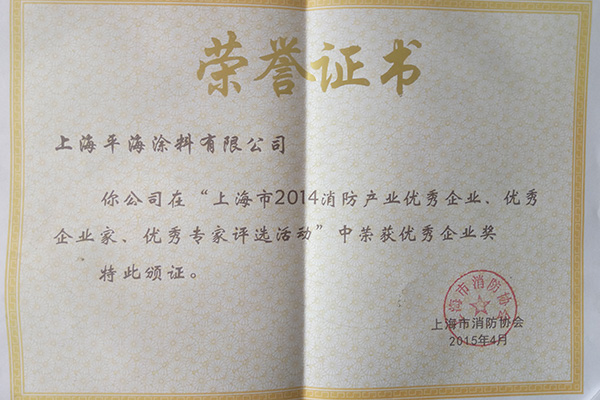 荣誉证书
上海平海涂料有限公司
你公司在“上海市2014消防产业优秀企业、优秀
企业家、优秀专家评选活动”中荣获优秀企业奖
特此颁证。
上海市消防协会
上海市消防协会
2015年4月